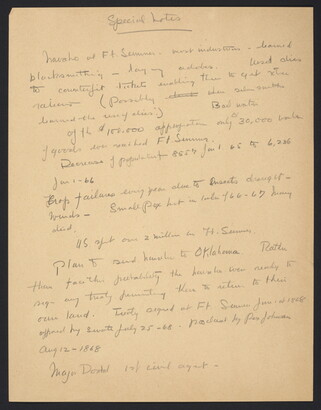 Special Notes
Navaho at Ft Sumner - most industrious - learned
blacksmithing - making adobes. Used dies
to counterfeit tickets enabling them to get extra
rations (Possibly when silversmiths
learned the use of dies) Bad water
Of the $100,000 appropriation only 30,000 worth
of goods ever reached Ft Sumner.
Decrease of population 8557 Jan 1-65 to 6,236
Jan 1-66
Crop failures every year due to insects drought -
winds - Small Pox hit in winter of 66-67 many
died.
US spent over 2 million on Ft. Sumner.
Plan to send Navaho to Oklahoma. Rather
than face this probability the Navaho were ready to
sign any treaty permitting them to return to their
own land. Treaty signed at Ft Sumner June 1st 1868
approved by Senate July 25-68. proclaimed by Pres Johnson
Aug 12-1868
Major Dodd 1st civil agent -